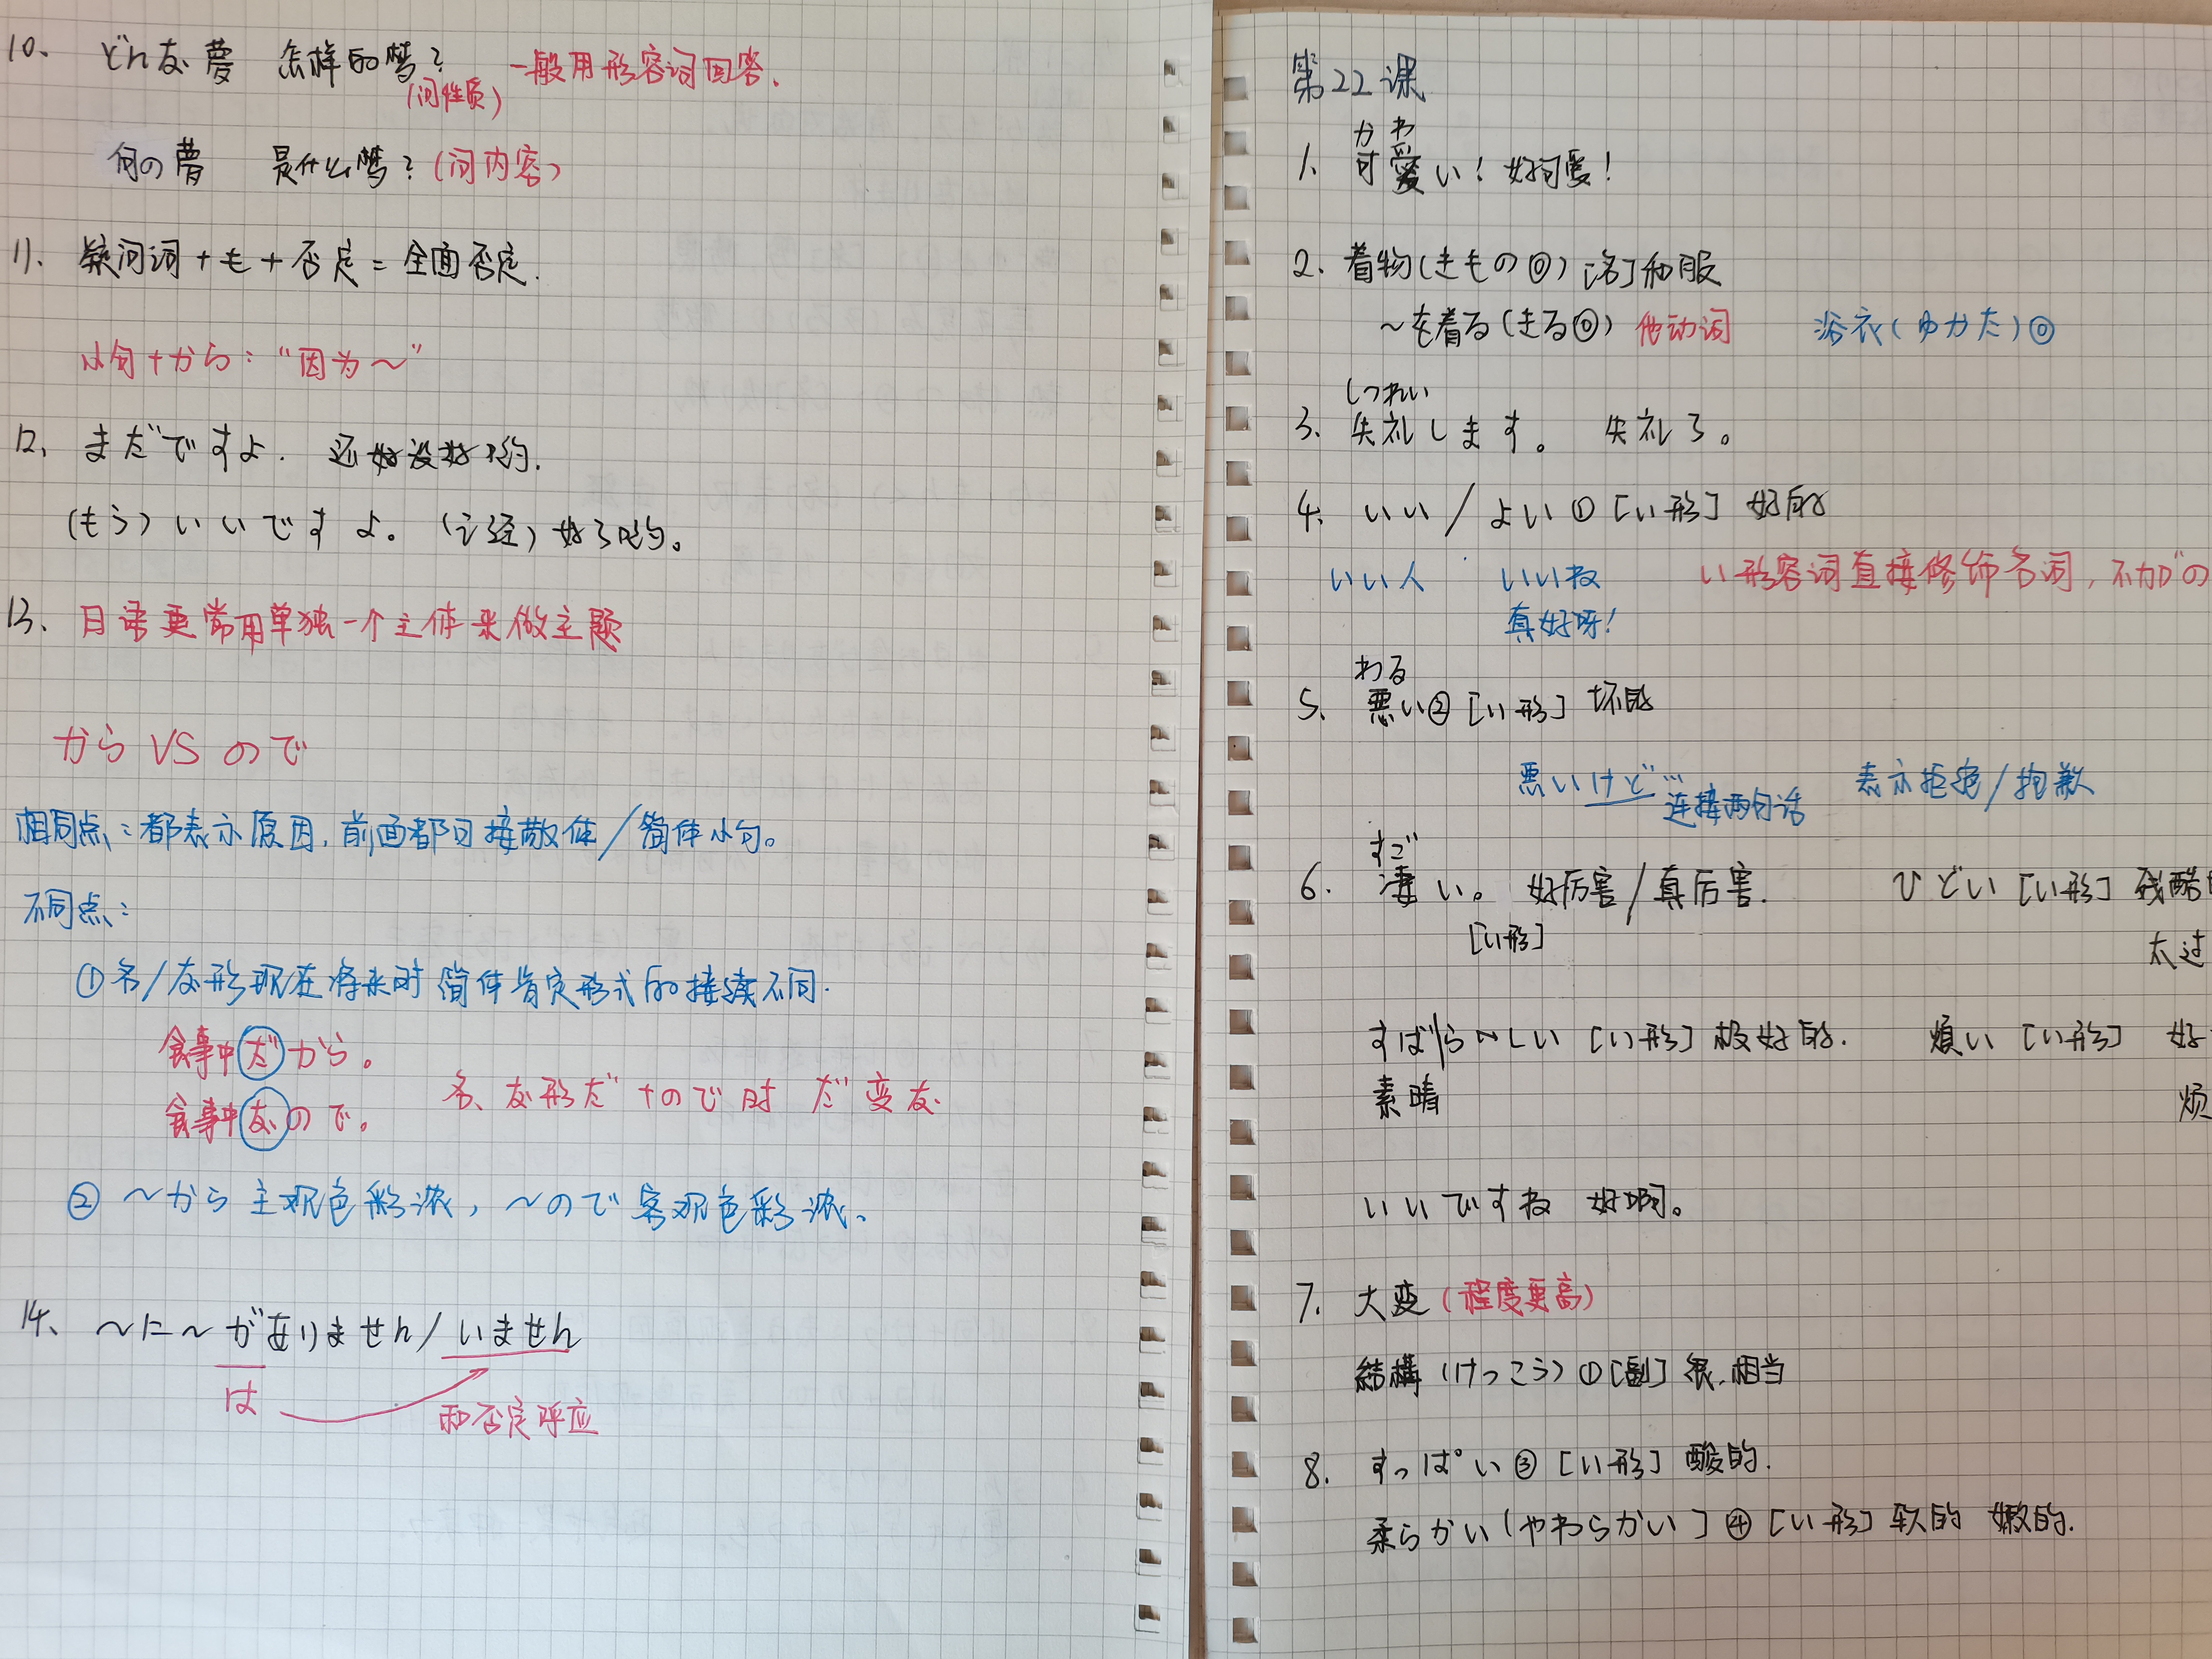 10、 どんな夢 怎样的梦? 一般用形容词回答.
(问性质)
何の夢 是什么梦?(问内容)
11. 疑问词+も+否定=全面否定.
小句+から:“因为~”
12、 まだですよ. 还没好哟.
(もう)いいですよ。(已经)好了哟。
13、 日语更常用单独一个主体来做主题
から VS ので
相同点:都表示原因,前面都可接敬体/简体小句。
不同点:
①名/な形现在将来时 简体肯定形式的接续不同.
食事中だから。
食事中なので。 名、な形だ+ので时 だ变な
② ~から主观色彩浓,~ので客观色彩浓。
14、 ~に~がありません/いません
は 和否定呼应
第22课
かわ
1. 可愛い! 好可爱!
2. 着物(きもの⓪)[名]和服
~を着る(きる⓪)他动词 浴衣(ゆかた)⓪
しつれい
3. 失礼します。 失礼了。
4. いい/よい① [い形] 好的
いい人 いいね い形容词直接修饰名词,不加の
真好呀!
わる
5. 悪い② [い形] 坏的
悪いけど… 连接两句话 表示拒绝/抱歉
すご
6. 凄い。 好厉害/真厉害. ひどい [い形] 残酷
[い形] 太过
すばらしい [い形] 极好的. 煩い [い形] 好
素晴 烦
いいですね 好啊。
7. 大変(程度更高)
結構(けっこう)①[副] 很,相当
8. すっぱい③ [い形] 酸的.
柔らかい(やわらかい]④[い形] 软的 嫩的.